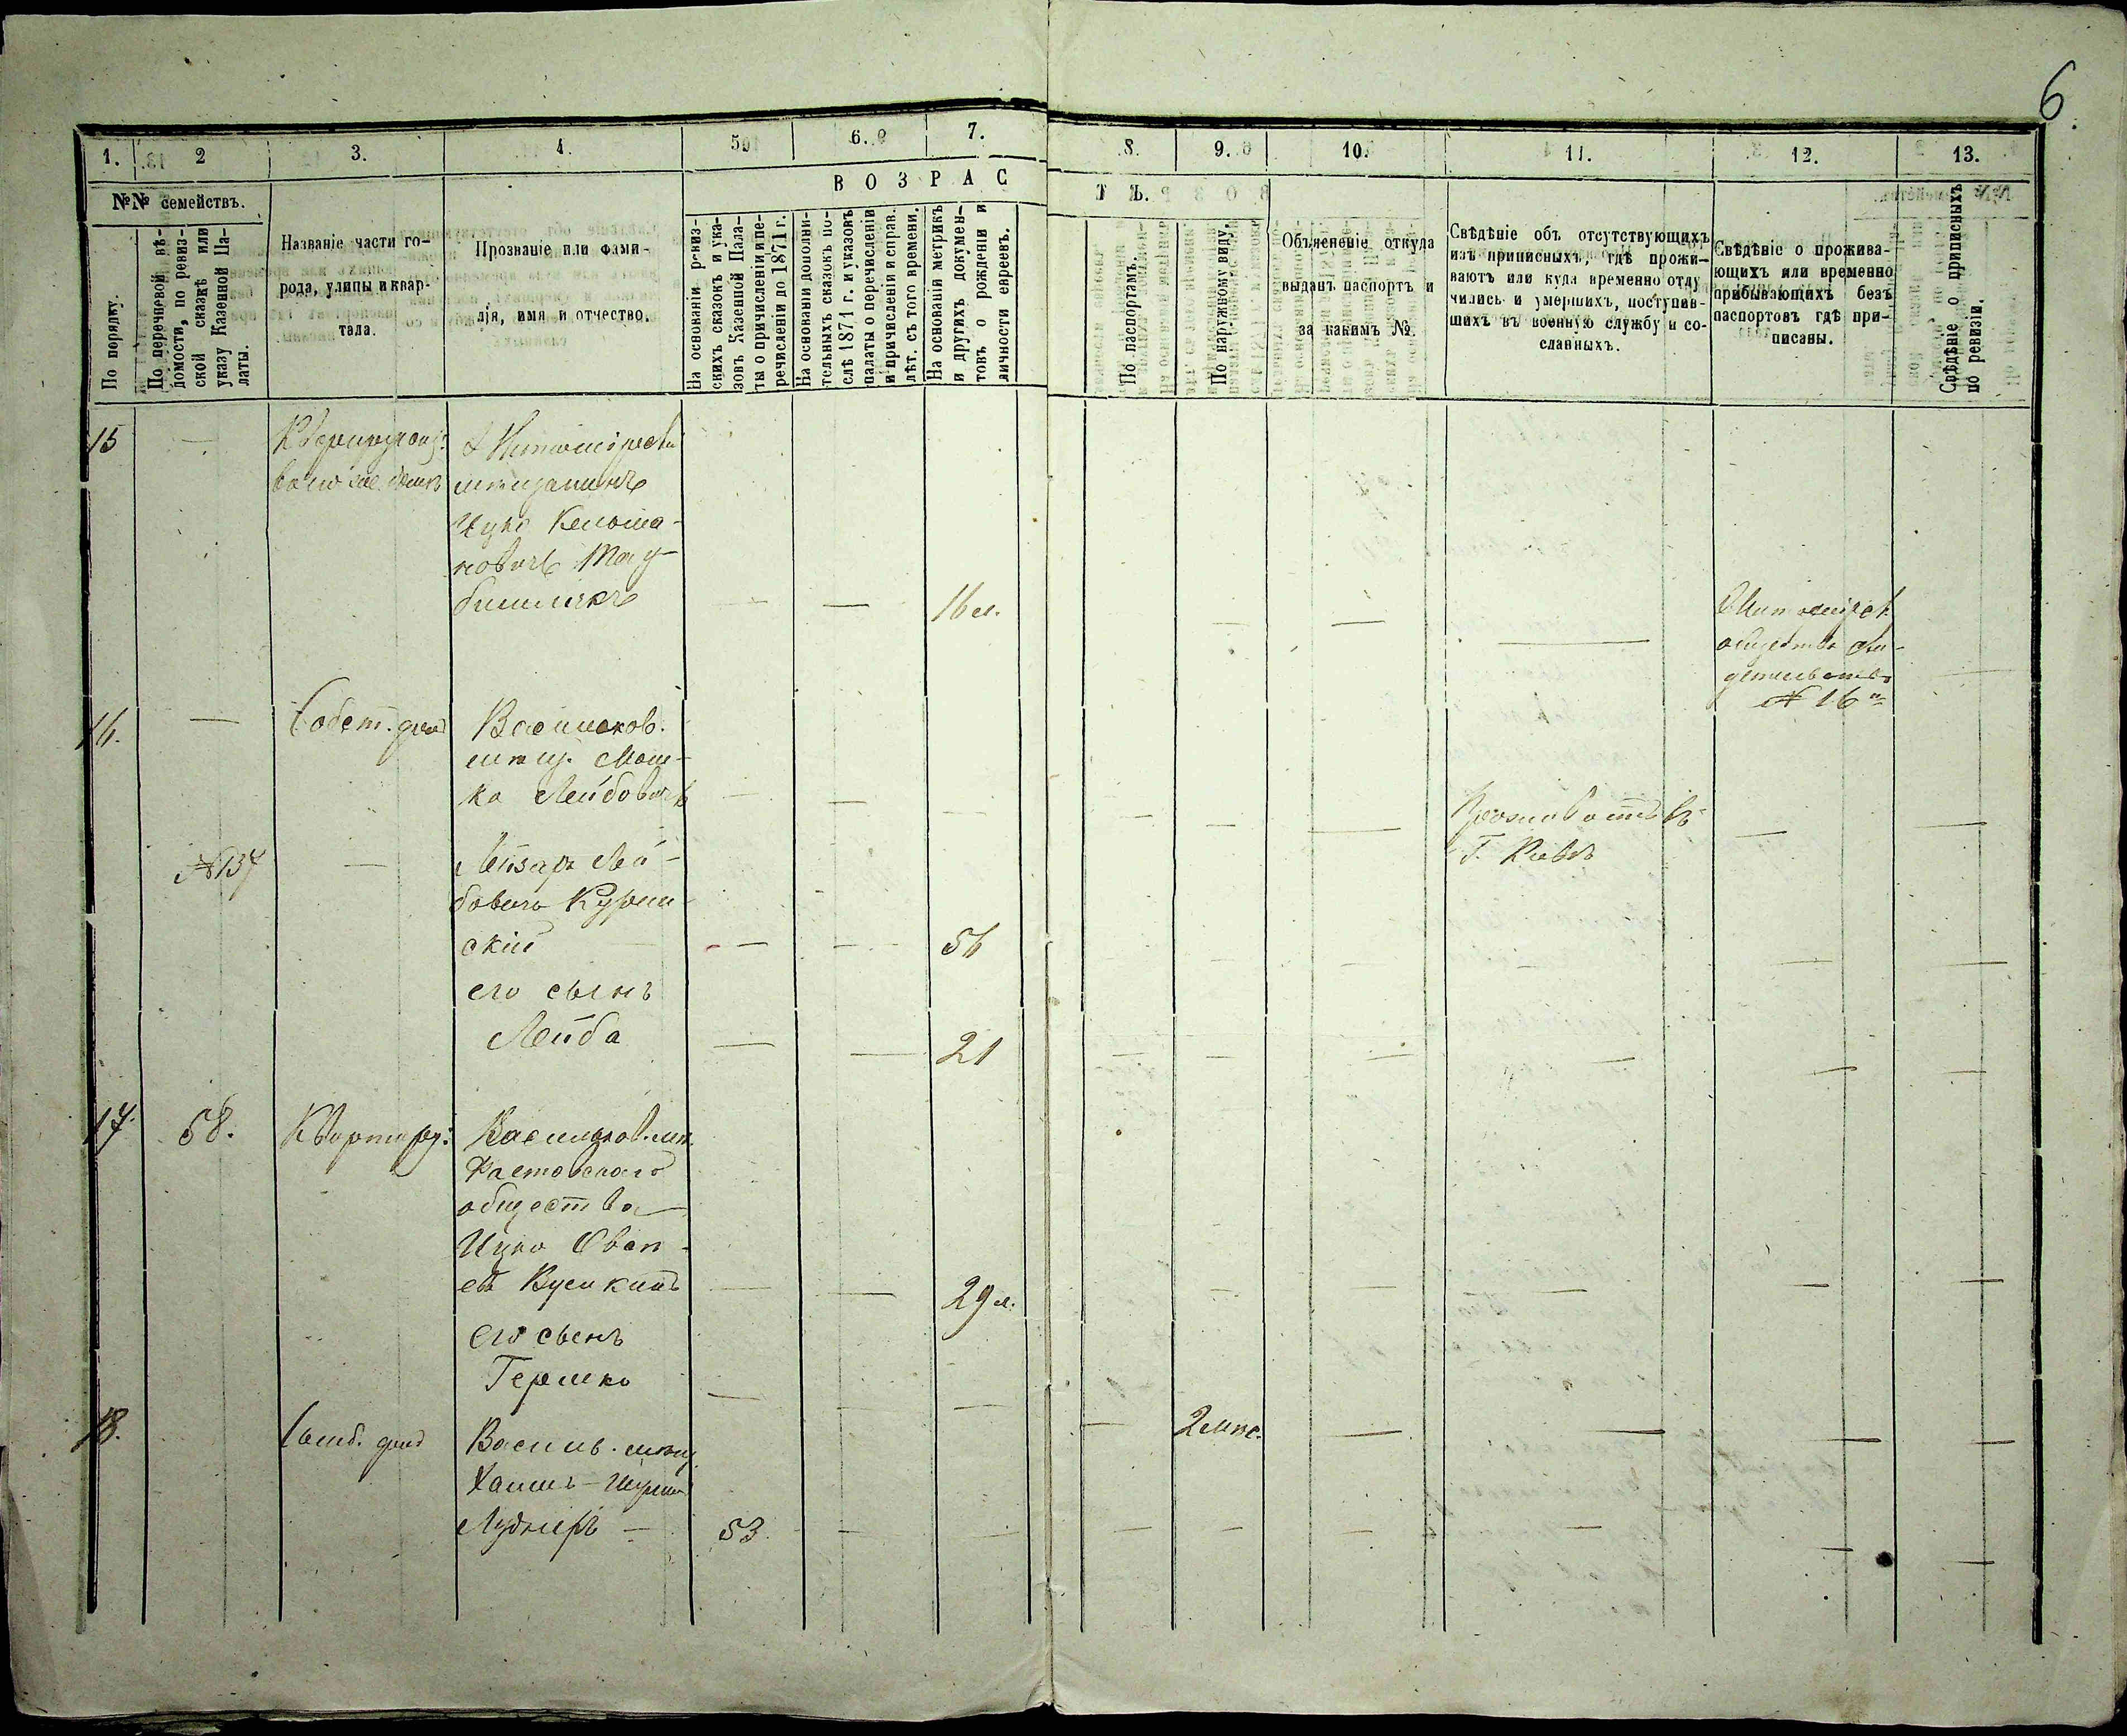 6
1. 2 3. 4. 5 6. 7. 8. 9. 10. 11. 12. 13.
№№ семействъ.
По порядку.
По перечневой вѣ-
домости, по ревиз-
ской сказкѣ или
указу Казенной Па-
латы.
Названіе части го-
рода, улицы и квар-
тала.
Прозваніе или фами-
лія, имя и отчество.
ВОЗРАС
ТЪ.
На основаніи ревиз-
скихъ сказокъ и ука-
зовъ Казенной Пала-
ты о причисленіи и пе-
речисленіи до 1871 г.
На основаніи дополни-
тельныхъ сказокъ по-
слѣ 1871 г. и указовъ
палаты о перечисленіи
и причисленіи и справ.
лѣт. съ того времени.
На основаніи метрикъ
и другихъ докумен-
товъ о рожденіи и
личности евреевъ.
По паспортамъ.
По наружному виду.
Объясненіе откуда
выданъ паспортъ и
за какимъ №.
Свѣдѣніе объ отсутствующихъ
изъ приписныхъ, гдѣ прожи-
ваютъ или куда временно отлу
чились и умершихъ, поступив-
шихъ въ военную службу и со-
сланныхъ.
Свѣдѣніе о прожива-
ющихъ или временно
прибывающихъ безъ
паспортовъ гдѣ при-
писаны.
Свѣдѣніе о приписныхъ
по ревизіи.
15 —
мѣщанинъ
Ицко
новичъ Тау-
— — 16 л. — — —
общества сви-
дѣтельство
№ 16
16. — Собст. домъ Васильков.
мѣщ. Мош-
ко Лейбовичъ — — — — — — Проживаетъ въ — —
г. Кіевѣ
№ 137 — Лейзаръ Лей-
бовичъ
скій — — 56 — — — — —
его сынъ
Лейба — — 21 — — — — — —
17. 58. Квартир: Васильков. мѣщ.
Фастовскаго
общества
Ицко
— — 29 л. — — — — —
его сынъ
Гершко — — — — 2 мѣс. — — — —
18. Собств. домъ Василь. мѣщ.
Хаимъ-
53 — — — — — — — —